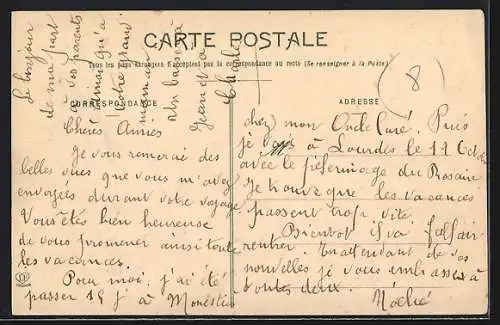 CARTE POSTALE
Tous les pays étrangers n'acceptent pas la correspondance au recto (Se renseigner à la Poste)
CORRESPONDANCE
ADRESSE
8
Le bonjour
de ma part
à vos parents
ainsi qu'à
votre grand'
maman
Un baiser à
Jean et à
Charles
Chères Amies
Je vous remerai des
belles vues que vous m'avez
envoyées durant votre voyage
Vous êtes bien heureuse
de vous promener ainsi toute
les vacances.
Pour moi j'ai été
passer 15 j à
chez mon Oncle Curé. Puis
je vais à Lourdes le 11 Octobre
avec le pèlerinage du Rosaire
Je trouve que les vacances
passent trop vite.
Bientot il va falloir
rentrer. En attendant de vos
nouvelles je vous embrasse à
toutes deux.